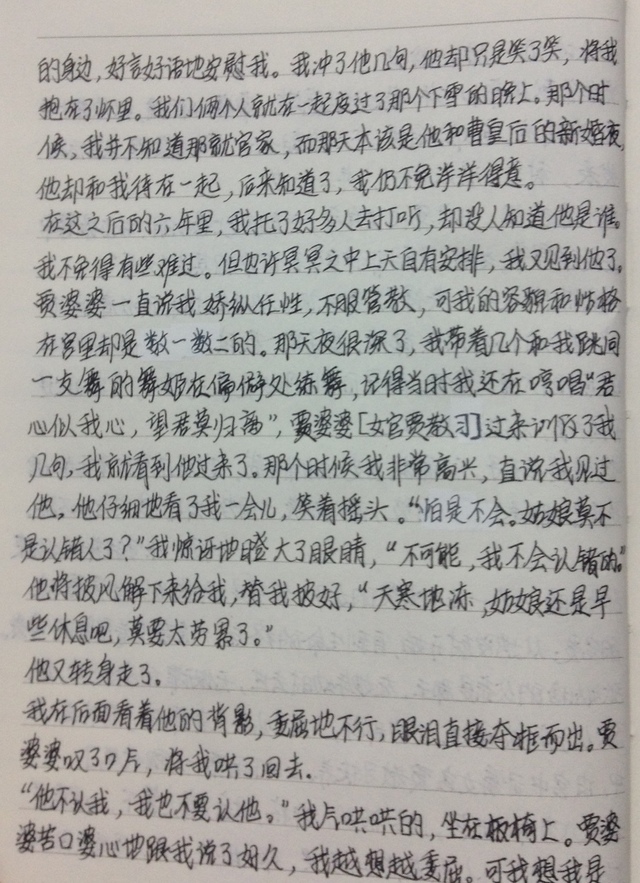 的身边，好言好语地安慰我。我冲了他几句，他却只是笑了笑，将我
抱在了怀里。我们俩个人就在一起度过了那个下雪的晚上。那个时
候，我并不知道那就官家，而那天本该是他和曹皇后的新婚夜，
他却和我待在一起，后来知道了，我仍不免洋洋得意。
在这之后的六年里，我托了好多人去打听，却没人知道他是谁。
我不免得有些难过。但也许冥冥之中上天自有安排，我又见到他了。
贾婆婆一直说我娇纵任性，不服管教，可我的容貌和性格
在宫里却是数一数二的。那天夜很深了，我带着几个和我跳同
一支舞的舞姬在偏僻处练舞，记得当时我还在哼唱“君
心似我心，望君莫归离”，贾婆婆[女官贾教习]过来训斥了我
几句，我就看到他过来了。那个时候我非常高兴，直说我见过
他。他仔细地看了我一会儿，笑着摇头。“怕是不会。姑娘莫不
是认错人了？”我惊讶地瞪大了眼睛，“不可能，我不会认错的。”
他将披风解下来给我，替我披好，“天寒地冻，姑娘还是早
些休息吧，莫要太劳累了。”
他又转身走了。
我在后面看着他的背影，委屈地不行，眼泪直接夺框而出。贾
婆婆叹了口气，将我哄了回去.
“他不认我，我也不要认他。”我气哄哄的，坐在板椅上。贾婆
婆苦口婆心地跟我说了好久，我越想越委屈。可我想我是